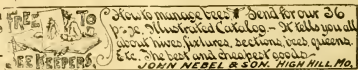 FREE TO
BEE KEEPERS.
How to manage bees? Send for our 36
p-ge. Illustrated Catalog. – It tells you all
about hives, fixtures, sections, bees, queens
Etc. The best and cheapest goods –
JOHN NEBEL & SON. HIGH HILL, MO.